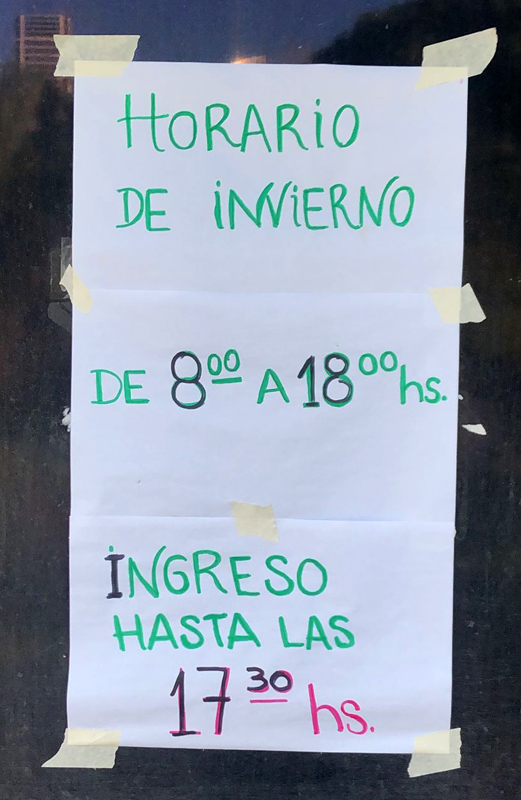 HORARiO
DE iNViERNO
DE 8⁰⁰ A 18⁰⁰ hs.
İNGRESO
HASTA LAS
17³⁰ hs.